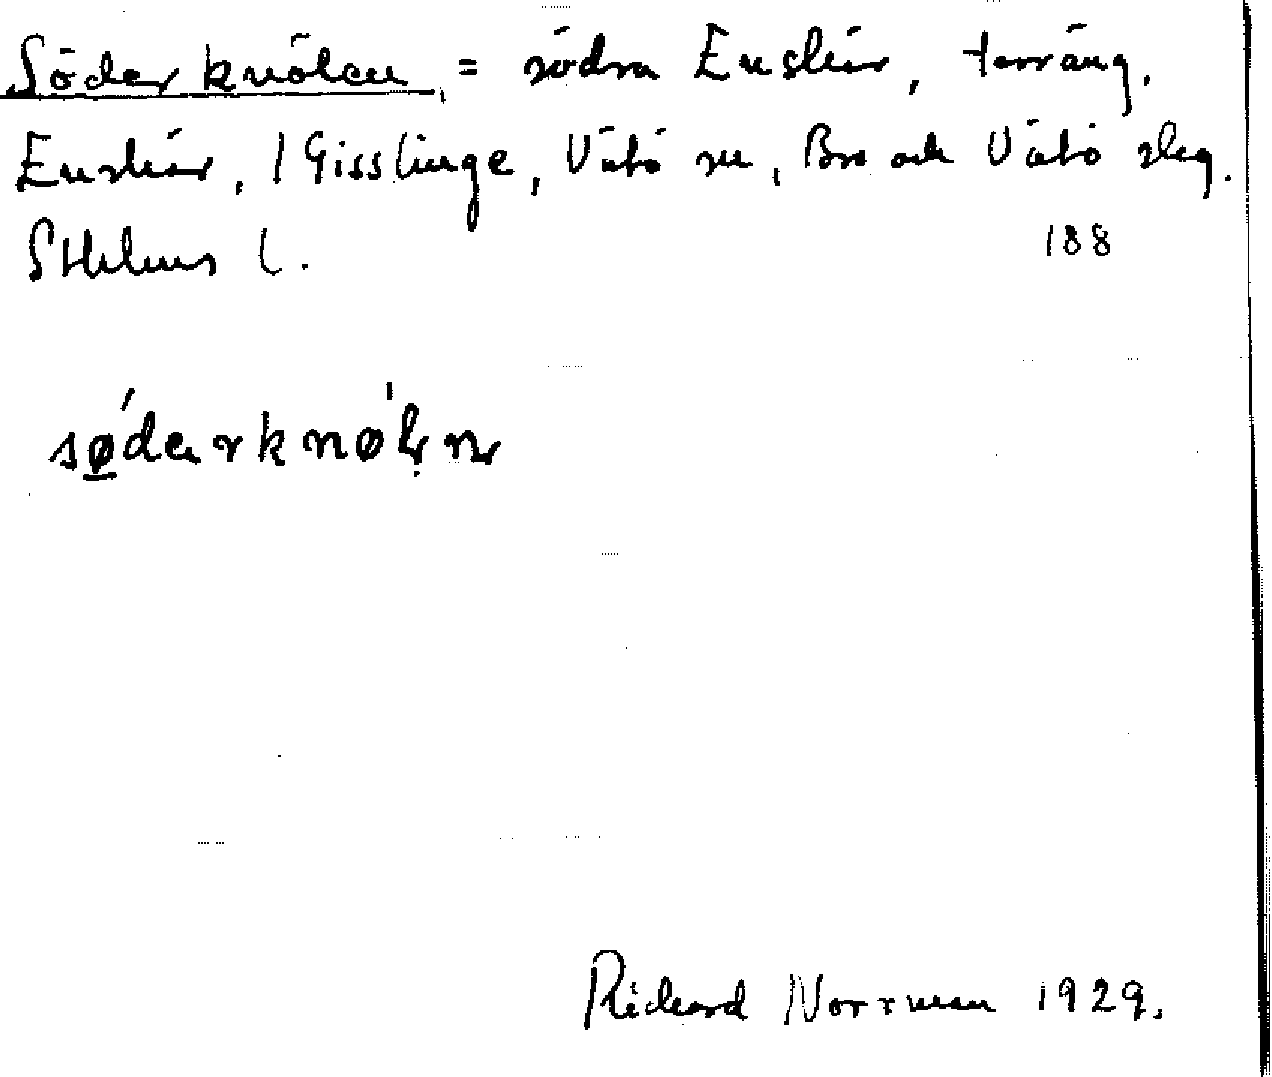 Söderknölen, = södra Enskär, terräng.
Enskär, / Gisslinge, Vätö sn, Bro och Vätö skg.
Sthlms l. 188
sødərknøln
Richard Norrman 1929.